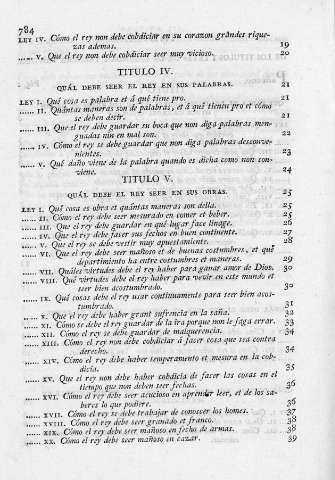 784
LEY IV. Cómo el rey non debe cobdiciar en su corazon grandes rique-
zas ademas. 19
...... V. Que el rey non debe cobdiciar seer muy vicioso. 20
TITULO IV.
QUÁL DEBE SEER EL REY EN SUS PALABRAS. 21
LEY I. Qué cosa es palabra et á qué tiene pro. 21
...... II. Quántas maneras son de palabras, et á qué tienen pro et cómo
se deben decir. 21
...... III. Que el rey debe guardar su boca que non diga palabras men-
guadas nin en mal son. 22
...... IV. Cómo el rey se debe guardar que non diga palabras desconve-
nientes. 23
...... V. Qué daño viene de la palabra quando es dicha como non con-
viene. 24
TITULO V.
QUÁL DEBE EL REY SEER EN SUS OBRAS. 25
LEY I. Qué cosa es obra et quántas maneras son della. 25
...... II. Cómo el rey debe seer mesurado en comer et beber. 25
...... III. Que el rey debe guardar en qué lugar face linage. 26
...... IV. Que el rey debe facer sus fechos en buen continente. 27
...... V. Que el rey se debe vestir muy apuestamiente. 28
...... VI. Que el rey debe seer mañoso et de buenas costumbres, et qué
departimiento ha entre costumbres et maneras. 29
...... VII. Quáles virtudes debe el rey haber para ganar amor de Dios. 30
...... VIII. Qué virtudes debe el rey haber para vevir en este mundo et
seer bien acostumbrado. 30
...... IX. Qué cosas debe el rey usar continuamente para seer bien acos-
tumbrado. 31
...... X. Que el rey debe haber grant sufrencia en la saña. 32
...... XI. Cómo se debe el rey guardar de la ira porque non le faga errar. 33
...... XII. Cómo el rey se debe guardar de malquerencia. 34
...... XIII. Cómo el rey non debe cobdiciar á facer cosa que sea contra
derecho. 34
...... XIV. Cómo el rey debe haber temperamiento et mesura en la cob-
dicia. 35
...... XV. Que el rey non debe haber cobdicia de facer las cosas en el
tiempo que non deben seer fechas. 36
...... XVI. Cómo el rey debe seer acucioso en aprender leer, et de los sa-
beres lo que podiere. 36
...... XVII. Cómo el rey se debe trabajar de conoscer los homes. 37
...... XVIII. Cómo el rey debe seer granado et franco. 38
...... XIX. Cómo el rey debe seer mañoso en fecho de armas. 38
...... XX. Cómo el rey debe seer mañoso en cazar. 39